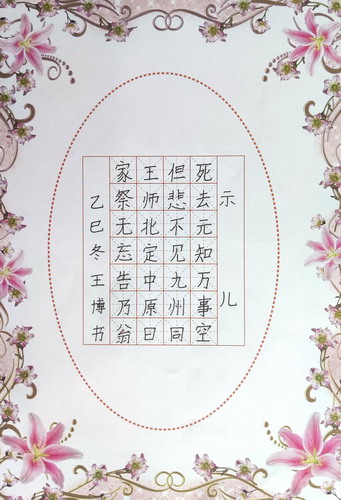 示儿
死去元知万事空
但悲不见九州同
王师北定中原日
家祭无忘告乃翁
乙巳冬王博书